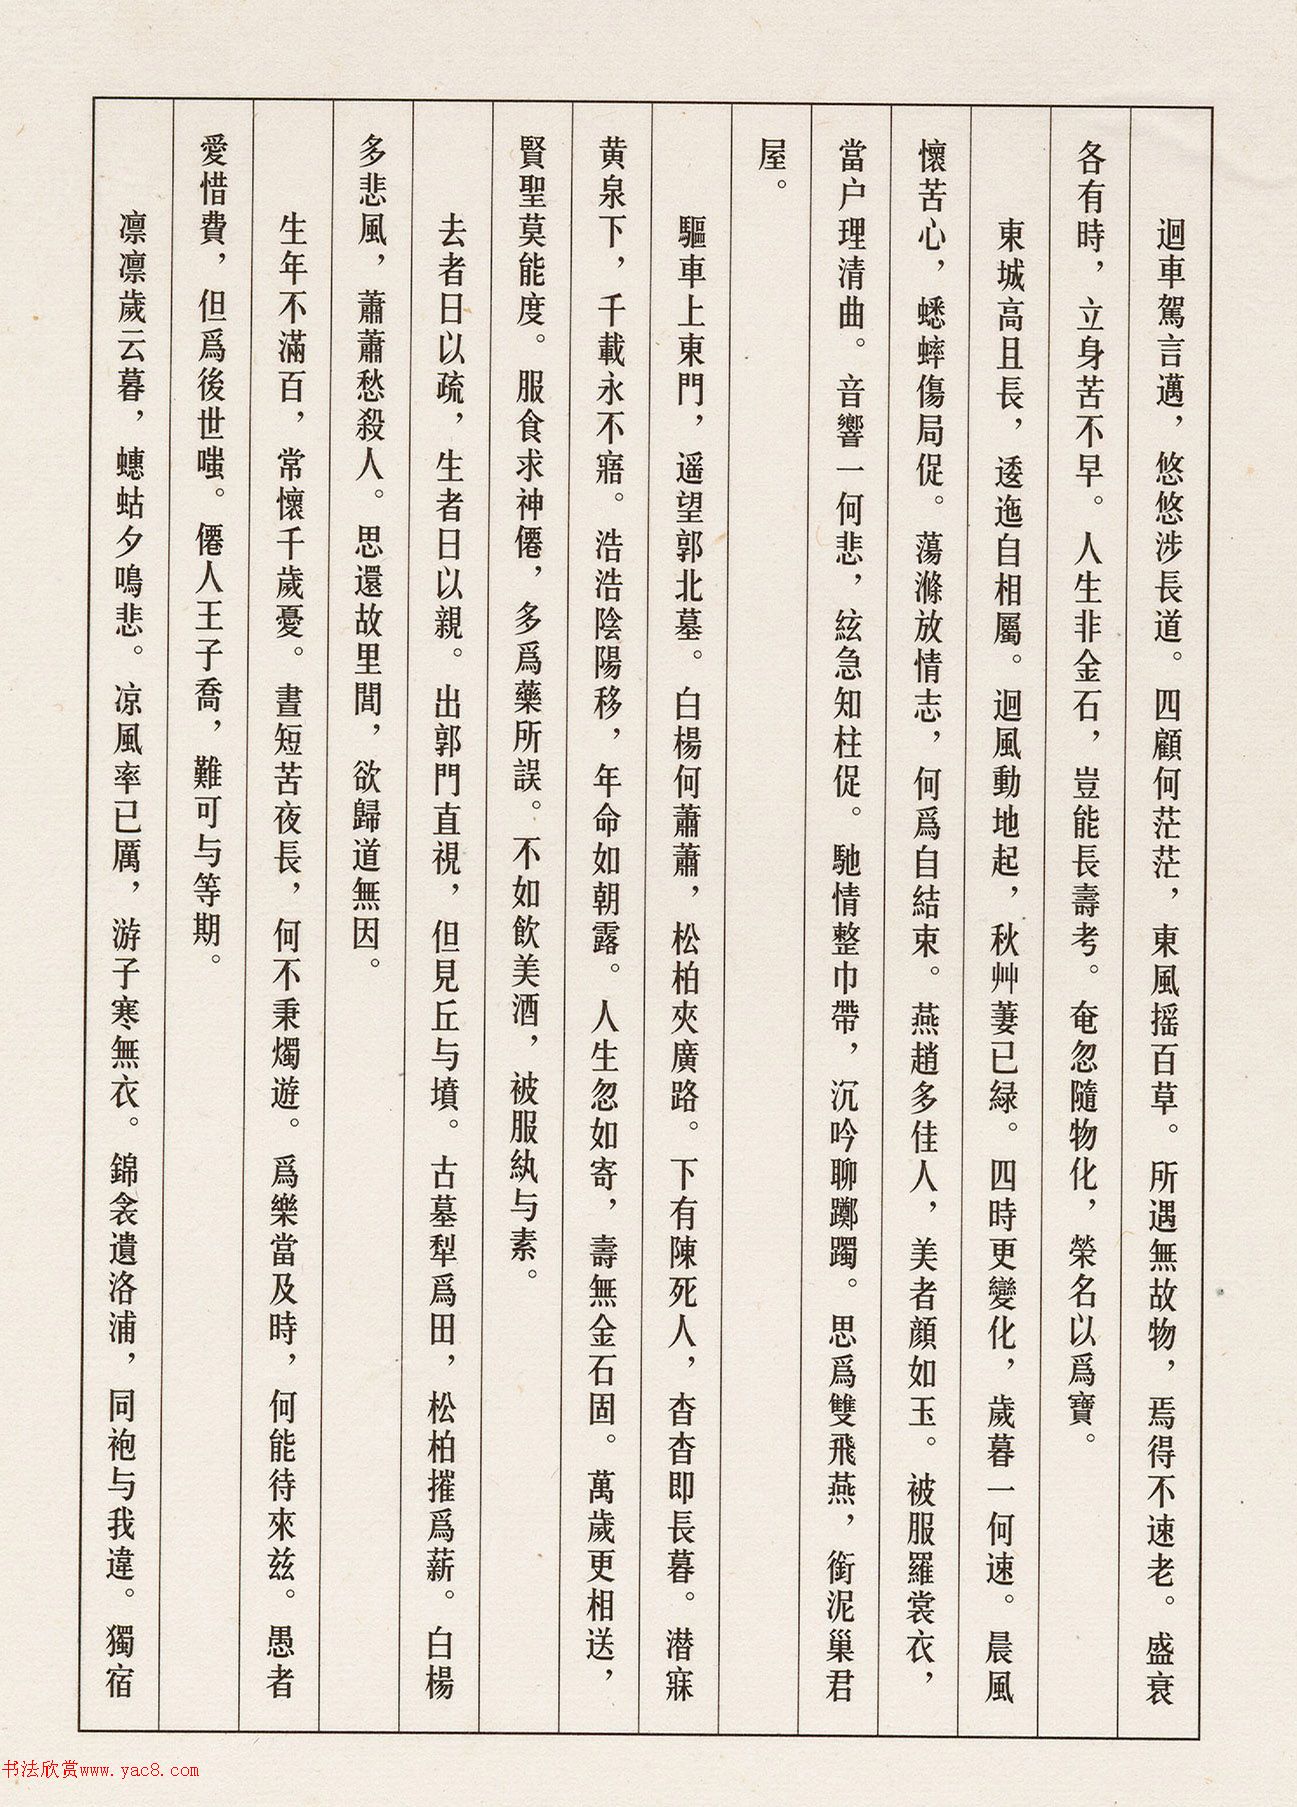 迴車駕言邁，悠悠涉長道。四顧何茫茫，東風摇百草。所遇無故物，焉得不速老。盛衰
各有時，立身苦不早。人生非金石，豈能長壽考。奄忽隨物化，榮名以爲寶。
東城高且長，逶迤自相屬。迴風動地起，秋艸萋已緑。四時更變化，歲暮一何速。晨風
懷苦心，蟋蟀傷局促。蕩滌放情志，何爲自結束。燕趙多佳人，美者顔如玉。被服羅裳衣，
當户理清曲。音響一何悲，絃急知柱促。馳情整巾帶，沉吟聊躑躅。思爲雙飛燕，銜泥巢君
屋。
驅車上東門，遥望郭北墓。白楊何蕭蕭，松柏夾廣路。下有陳死人，杳杳即長暮。潜寐
黄泉下，千載永不寤。浩浩陰陽移，年命如朝露。人生忽如寄，壽無金石固。萬歲更相送，
賢聖莫能度。服食求神僊，多爲藥所誤。不如飲美酒，被服紈与素。
去者日以疏，生者日以親。出郭門直視，但見丘与墳。古墓犁爲田，松柏摧爲薪。白楊
多悲風，蕭蕭愁殺人。思還故里閭，欲歸道無因。
生年不滿百，常懷千歲憂。晝短苦夜長，何不秉燭遊。爲樂當及時，何能待來兹。愚者
愛惜費，但爲後世嗤。僊人王子喬，難可与等期。
凛凛歲云暮，螻蛄夕鳴悲。凉風率已厲，游子寒無衣。錦衾遺洛浦，同袍与我違。獨宿
书法欣赏www.yac8.com